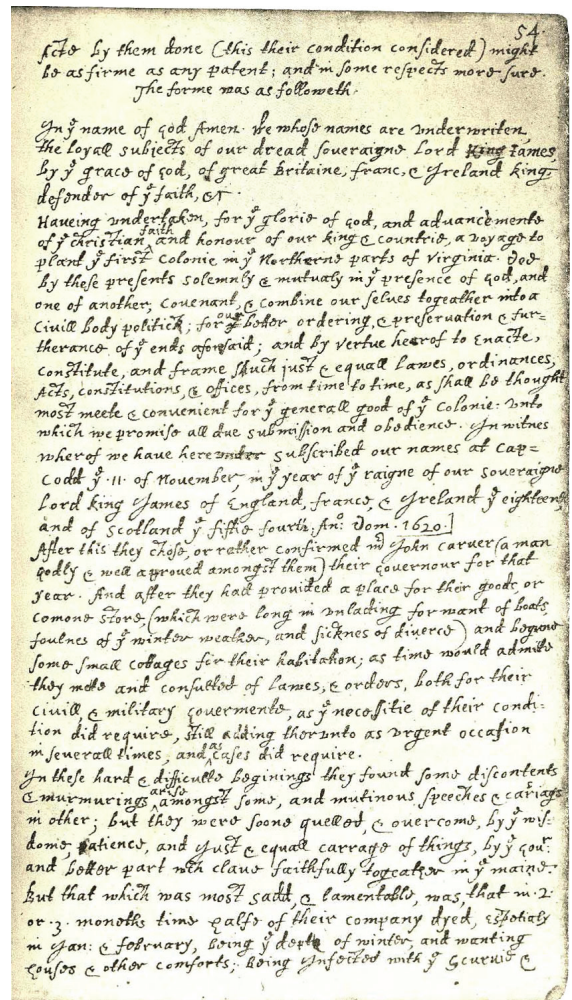 54
Acts by them done (this their condition considered) might
be as firme as any patent; and in some respects more sure.
The forme was as followeth.
In yͤ name of god Amen. We whose names are underwriten,
the loyall subjects of our dread soveraigne Lord King James,
by yͤ grace of god, of great Britaine, franc, & Ireland king,
defender of yͤ faith, &c.
Haveing undertaken, for yͤ glorie of god, and advancemente
of yͤ christian faith and honour of our king & countrie, a voyage to
plant yͤ first colonie in yͤ Northerne parts of Virginia. Doe
by these presents solemnly & mutualy in yͤ presence of god, and
one of another, covenant, & combine our selves togeather into a
Civill body politick; for our better ordering, & preservation & fur=
therance of yͤ ends aforesaid; and by vertue hearof to Enacte,
constitute, and frame shuch just & equall Lawes, ordinances,
Acts, constitutions, & offices, from time to time, as shall be thought
most meete & convenient for yͤ generall good of yͤ Colonie: unto
which we promise all due submission and obedience. In witnes
wherof we have hereunder subscribed our names at Cap=
Codd yͤ .11. of November, in yͤ year of yͤ raigne of our soveraigne
Lord king James of England, france, & Ireland yͤ eighteenth
and of Scotland yͤ fiftie fourth. Anͦ: Dom. 1620.]
After this they chose, or rather confirmed mͬ John carver (a man
godly & well approved amongst them) their governour for that
year. And after they had provided a place for their goods, or
comone store, (which were long in unlading for want of boats,
foulnes of yͤ winter weather, and sicknes of diverce) and begune
some small cottages for their habitation; as time would admitte
they mette and consulted of lawes, & orders, both for their
civill, & military governmente, as yͤ necessitie of their condi=
tion did require, still adding therunto as urgent occasion
in severall times, and as cases did require.
In these hard & difficulte beginings they found some discontents
& murmurings arise amongst some, and mutinous speeches & cariags
in other; but they were soone quelled, & overcome, by yͤ wis=
dome, patience, and just & equall carrage of things, by yͤ goverͬ
and better part wch clave faithfully togeather in yͤ maine.
But that which was most sadd, & lamentable, was, that in .2.
or .3. moneths time halfe of their company dyed, Espetialy
in Jan: & february, being yͤ depth of winter, and wanting
houses & other comforts; being Infected with yͤ Scurvie &